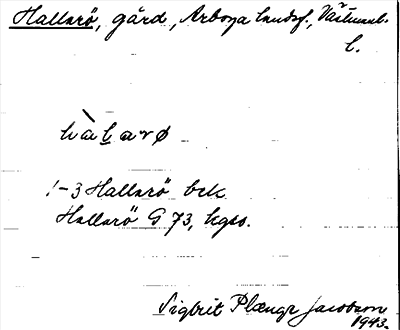 Hallarö, gård, Arboga landsf., Västmanl.
l.
hàlarø
1-3 Hallarö bek
Hallarö G 73, hgso.
Sigbrit Plænge Jacobson
1943.